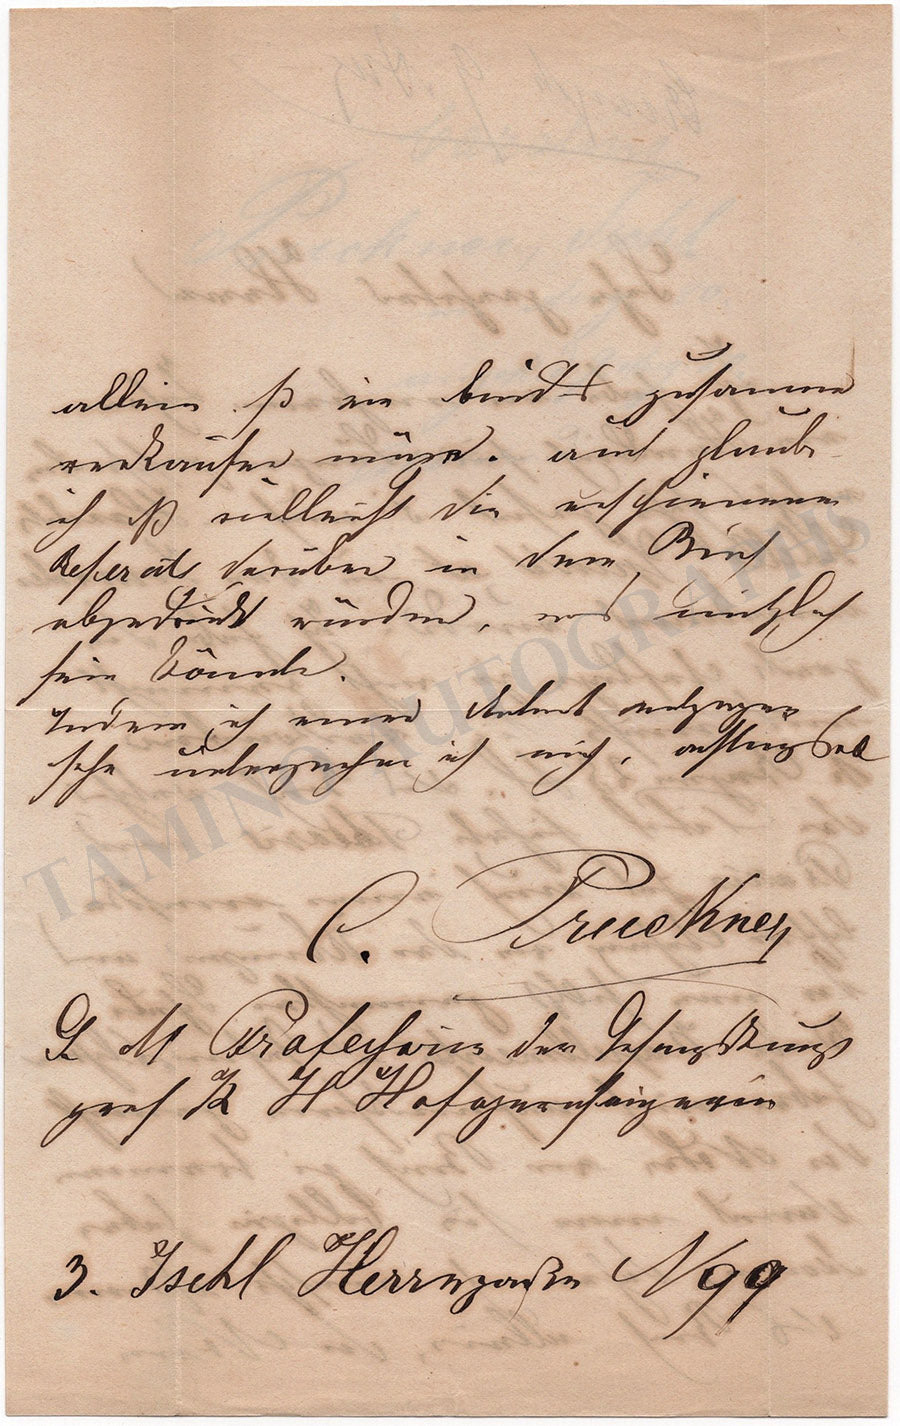 allein ß sie beides zusamme
verkaufen müße. auch glaube
ich ß vielleicht die erschienenen
Referate darüber in dem Buch
abgedruckt würden, was nützlich
sein könnte.
Indem ich einer Antwort entgegen
sehe unterzeichne ich mich, achtungsvoll
C. Pruckner
G M Professorin der Gesangskunst
gros K H Hofopernsängerin
z. Ischl Herrngasse N 99
TAMINO AUTOGRAPHS